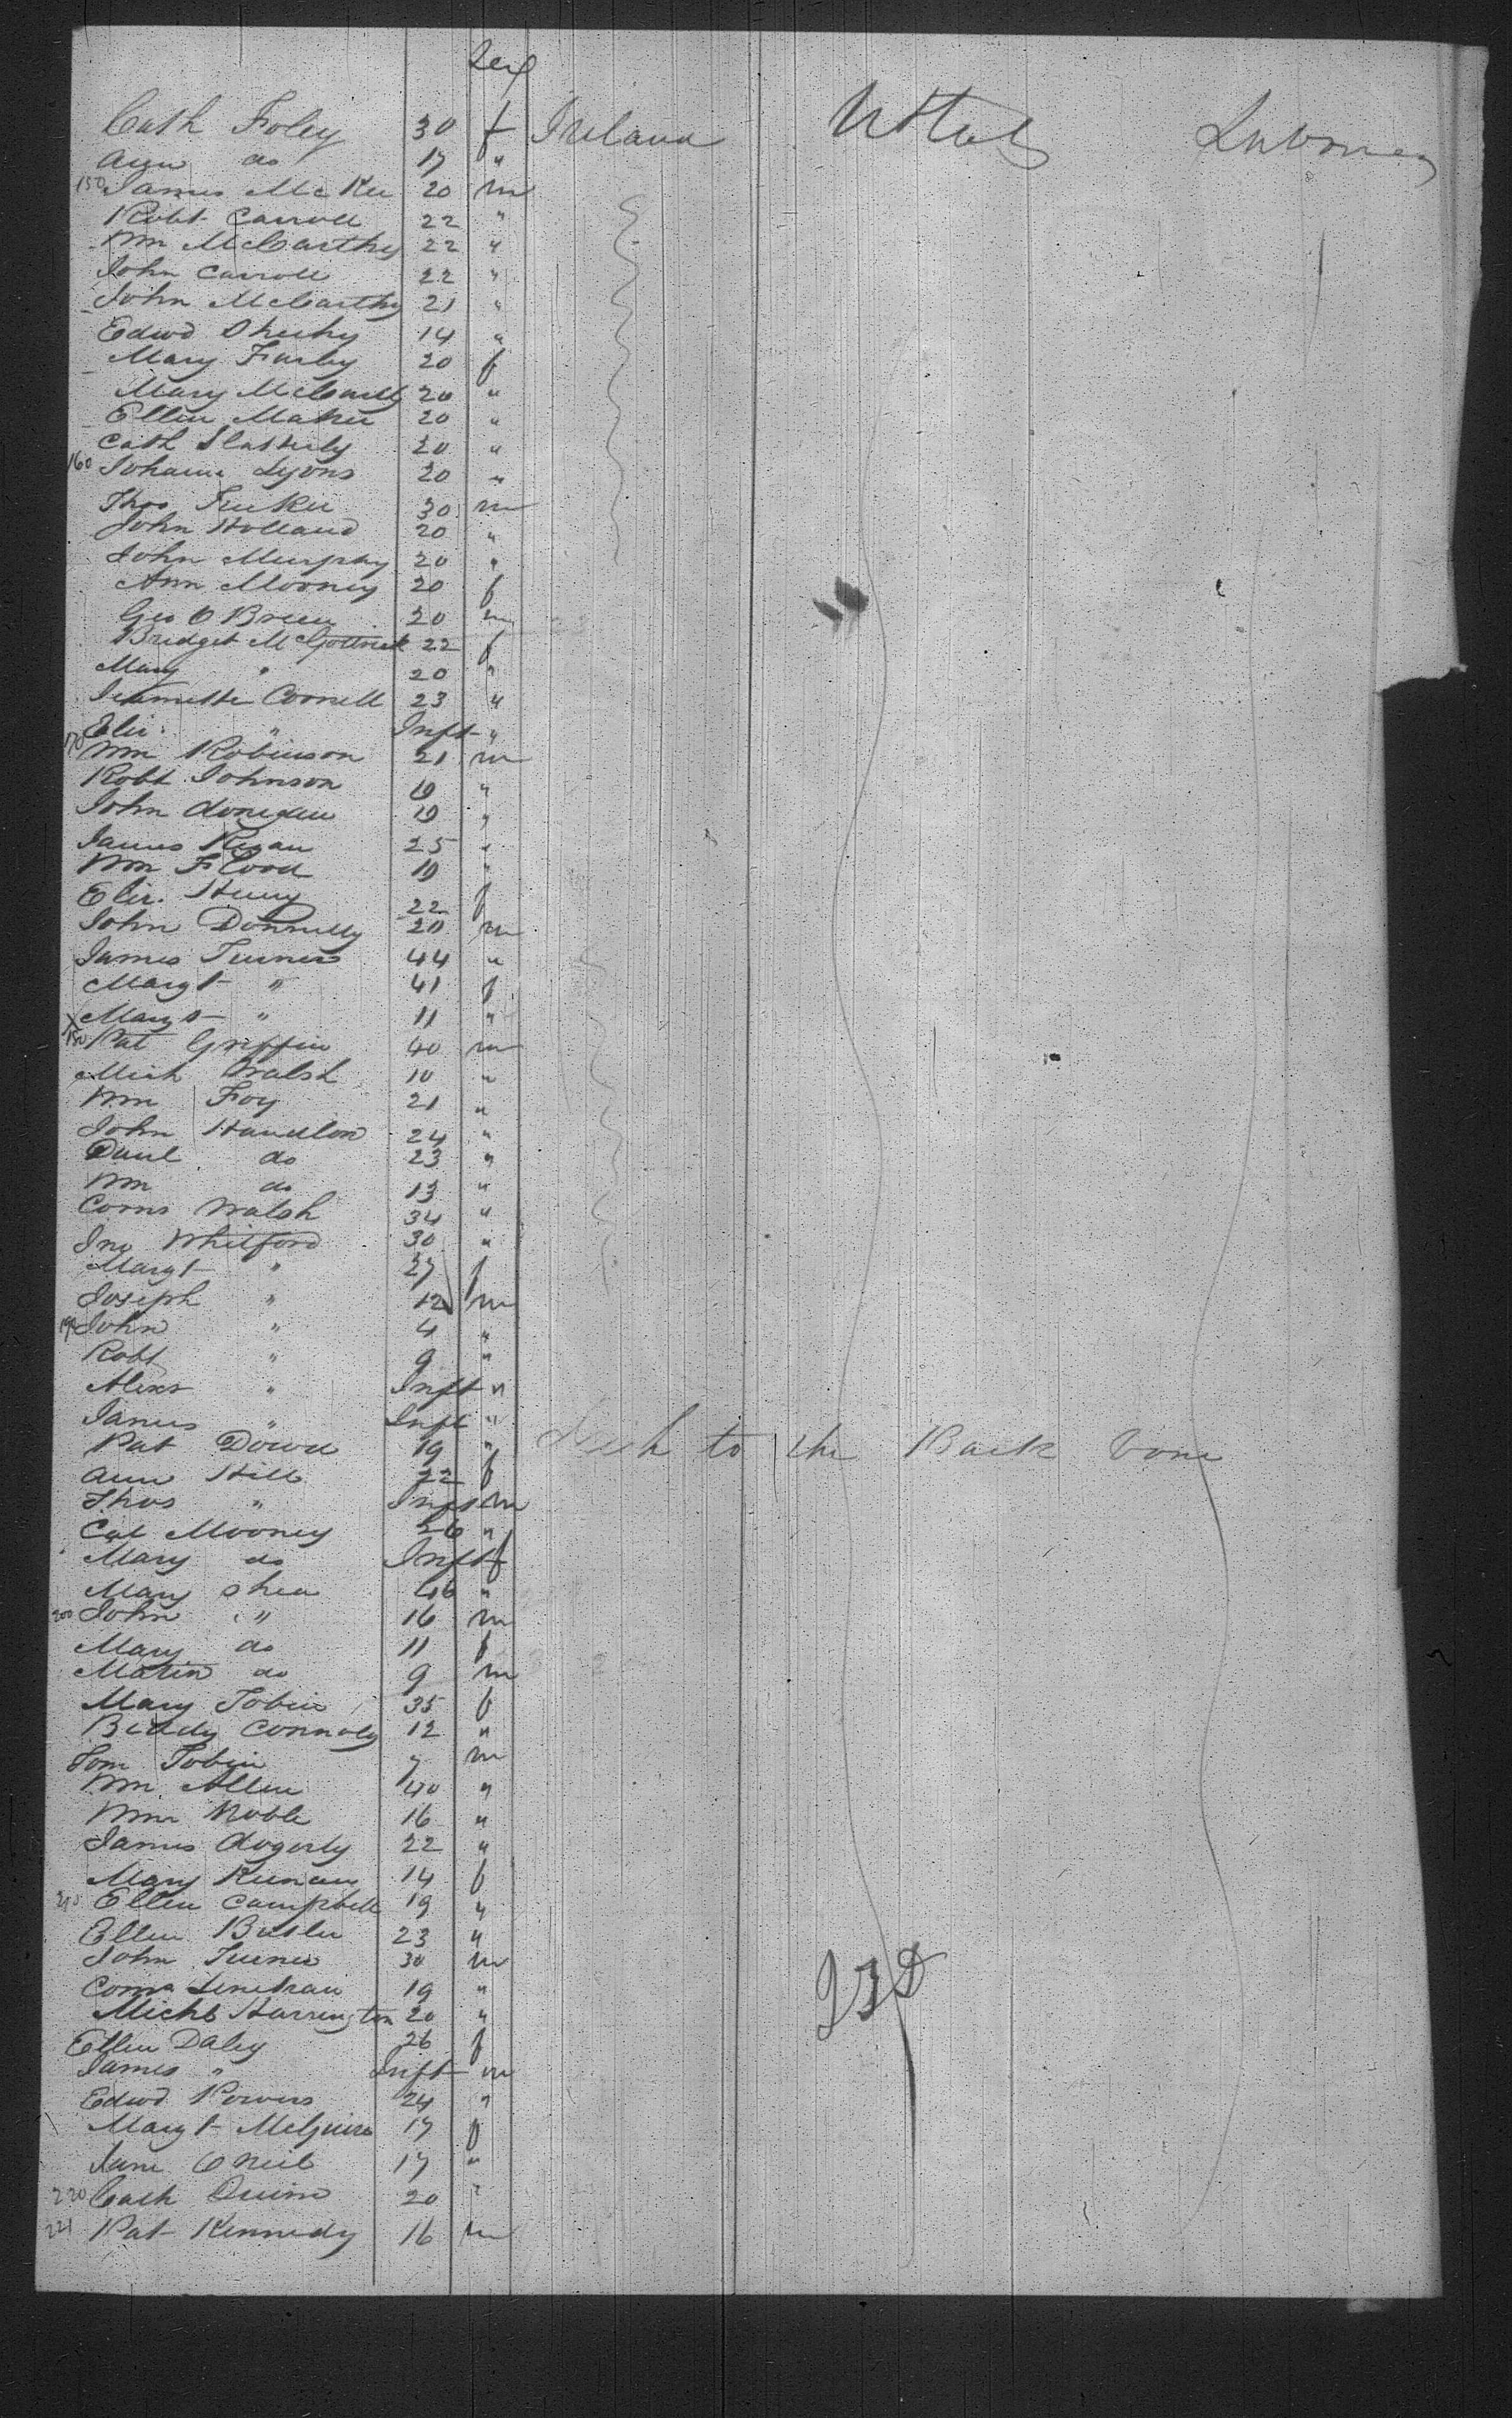 Sex
Cath Foley 30 f Ireland U States Labourer
Ann do 17 "
150 James McKee 20 m
Robt Carroll 22 "
Wm McCarthy 22 "
John Carroll 22 "
John McCarthy 21 "
Edwd Sheehy 14 "
Mary Furley 20 f
Mary McCarthy 20 "
Ellen Maher 20 "
Cath Slatterly 20 "
160 Johanna Lyons 20 "
Thos Tucker 30 m
John Holland 20 "
John Murphy 20 "
Ann Mooney 20 f
Geo O Brien 20 m
Bridget McGoldrick 22 f
Mary " 20 "
Jeannette Connell 23 "
Eliz. " Inft "
170 Wm Robinson 21 m
Robt Johnson 19 "
John Donegan 19 "
James Ryan 25 "
Wm Flood 19 "
Eliz. Henry 22 f
John Donnelly 20 m
James Turner 44 "
Margt " 41 f
x Margt " 11 "
180 Pat Griffin 40 m
Mich Walsh 10 "
Wm Foy 21 "
John Handlon 24 "
Danl do 23 "
Wm do 13 "
Corns Walsh 34 "
Jno Whitford 30 "
Margt " 27 f
Joseph " 12 m
190 John " 4 "
Robt " 9 "
Alexr " Inft "
James " Inft "
Pat Dowd 19 " to the Back bone
Ann Hill 22 f
Thos " Inft m
Cat Mooney 26 "
Mary do Inft f
Mary Shea 46 "
200 John " 16 m
Mary do 11 f
Matin do 9 m
Mary Tobin 35 f
Biddy Connoly 12 "
Tom Tobin 7 m
Wm Allen 40 "
Wm Noble 16 "
James Dogerty 22 "
Mary Keenan 14 f
210 Ellen Campbell 19 "
Ellen Butler 23 "
John Turner 30 m
Corns Lenehan 19 "
Michl Harrington 20 "
Ellen Daley 26 f
James " Inft m
Edwd Powers 24 "
Margt McGuire 17 f
Jane O Neil 17 "
220 Cath Quinn 20 "
221 Pat Kennedy 16 m